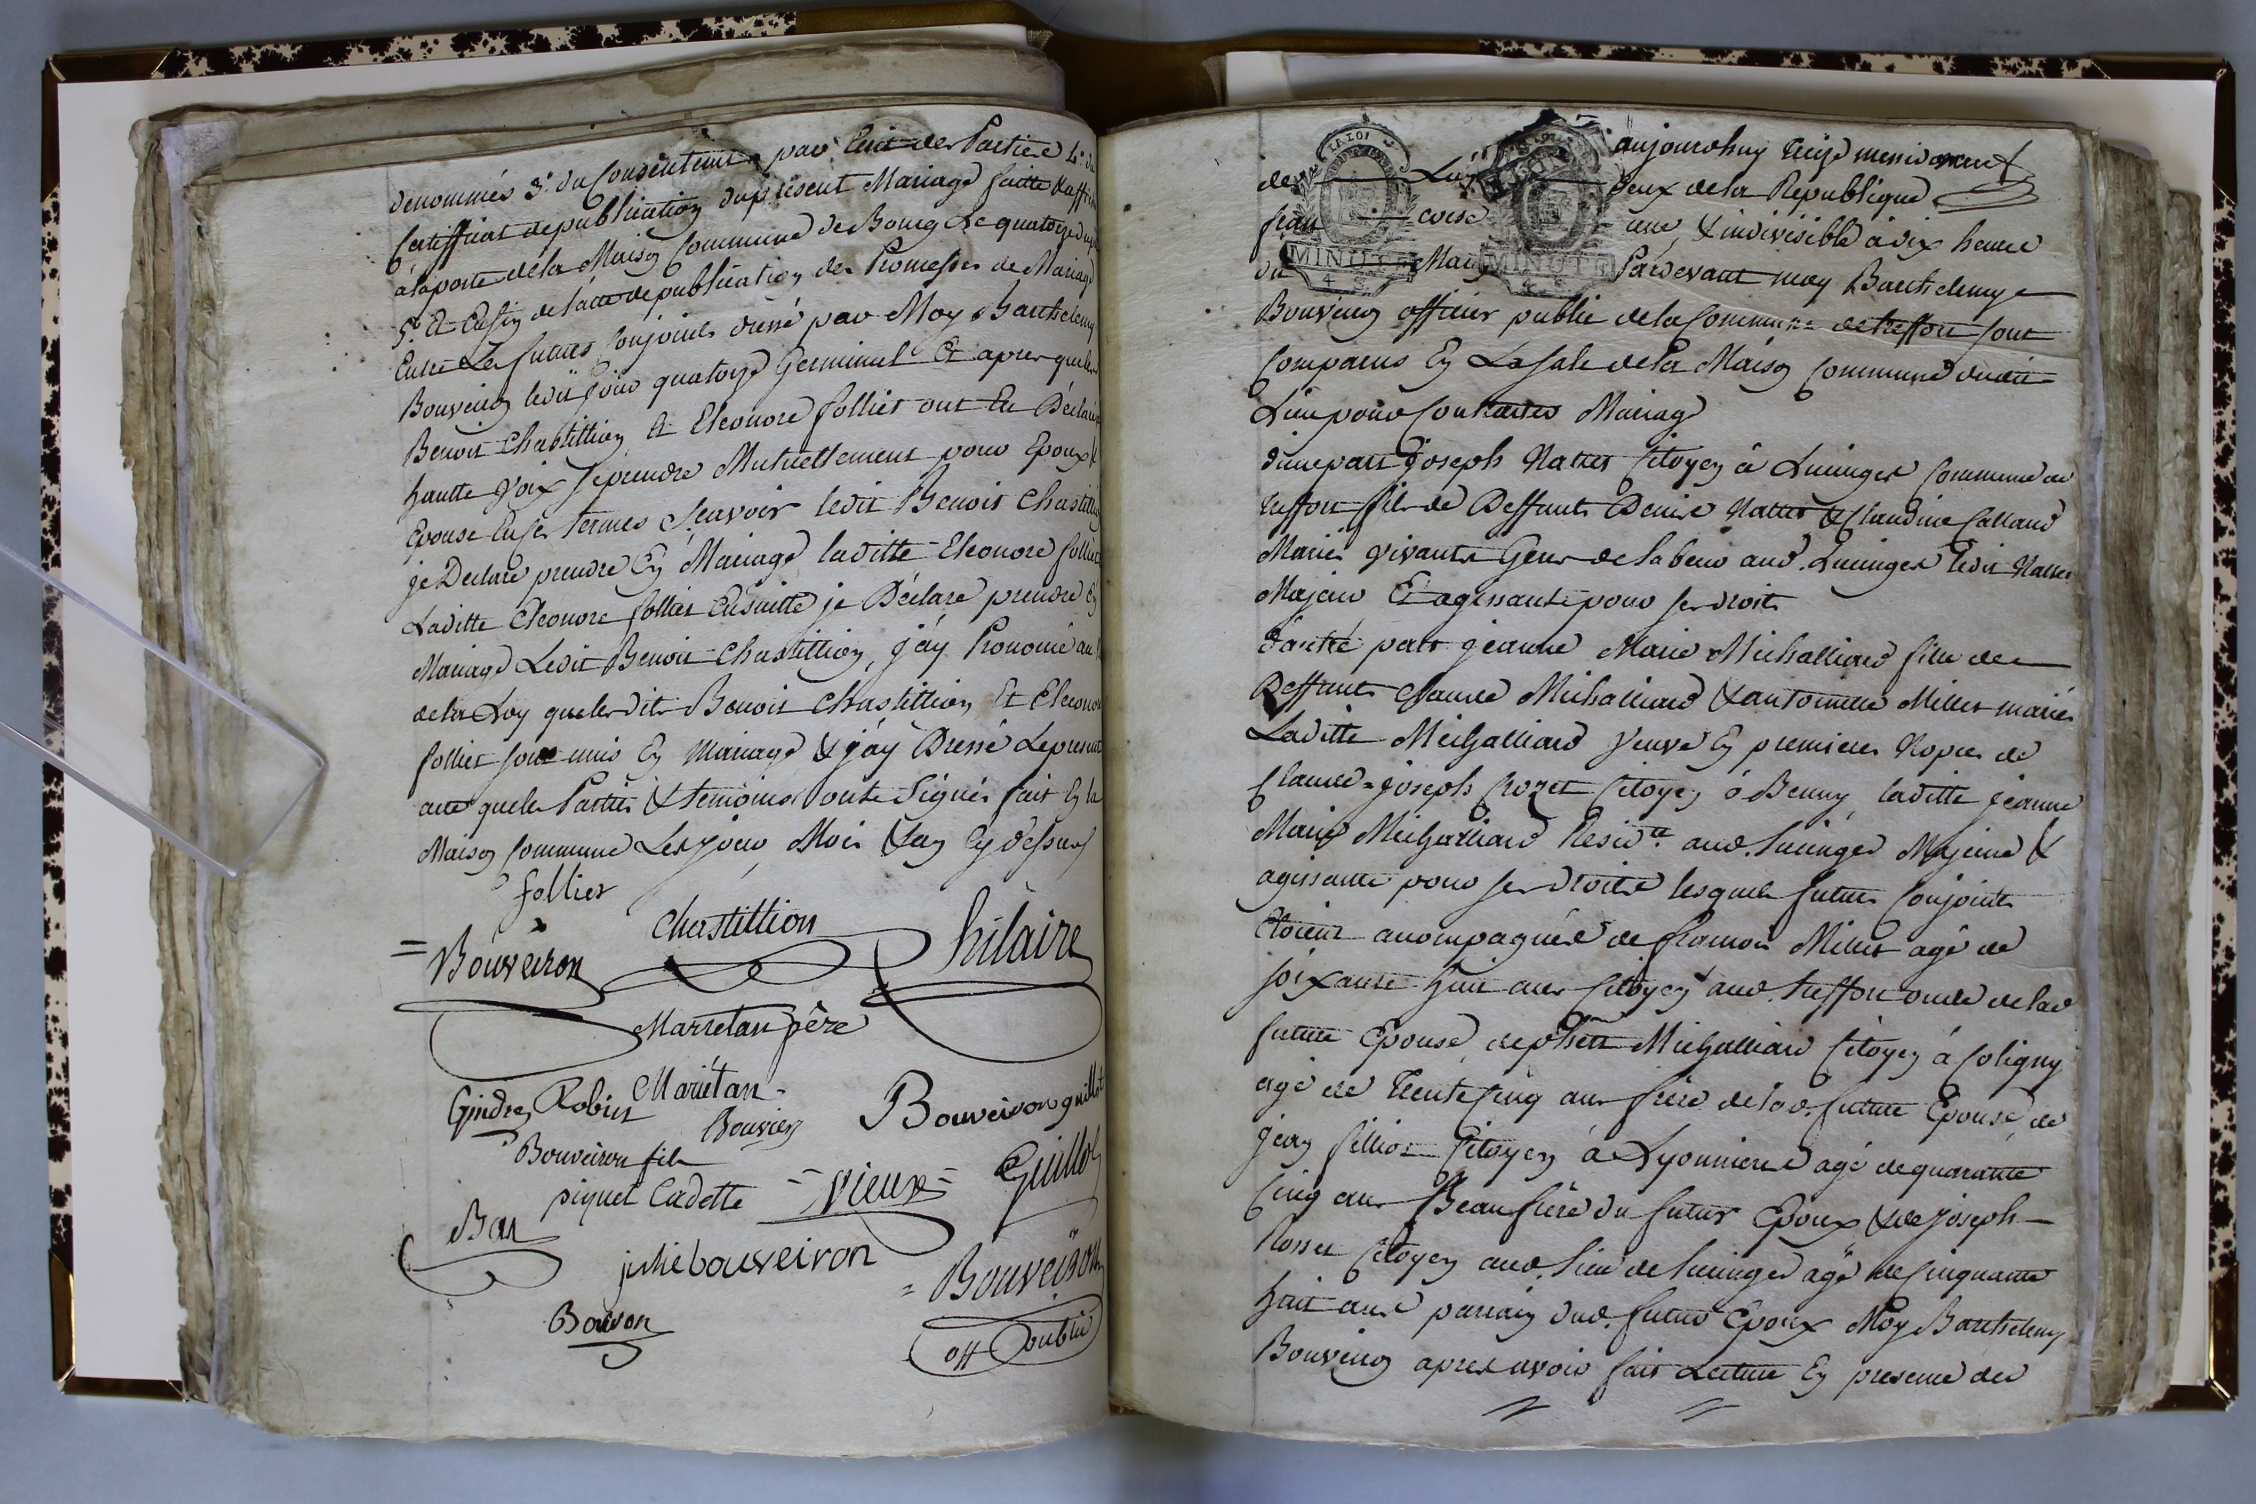 dénommés 3.° du Consentement par Ecrit des Parties 4.° du
Certifficat de publication du présent Mariage faitte & affi
a la porte de la Maison Commune de Bourg Le quatorze du
5.° Et Enfin de l'acte de publication des Promesses de Mariage
Entre Les futurs Conjoints dressé par Moy Barthelemy
Bouveiron ledit jour quatorze Germinal Et apres que les
Benoit Chastillion Et Eleonore follier ont Eu Déclaré
hautte voix se prendre Mutuellement pour Epoux &
Epouse En ses termes sçavoir ledit Benoit Chastillion
je Declare prendre En Mariage laditte Eleonore follier
Laditte Eleonore follier Ensuitte je Déclare prendre En
Mariage Ledit Benoit Chastillion, j'ay Prononcé au
de la Loy que lesdits Benoit Chastillion Et Eleonore
follier sont unis En Mariage & j'ay Dressé Le present
acte que les Parties & temoins ont Signés fait En la
Maison Commune Les jour, Mois & an Cy dessus
follier
Chastillion
hilaire
= Bouveiron
Marietan père
Gindre Robin Marietan
Bouvier Bouveiron guillot
Bouveiron fils
piquet Cadette = vieux = Guillot
Bon
julie bouveiron
= Bouveiron
Bouvon
off public
LA LOI
MINUTE
MINUTE
aujourdhuy treize messidor
de Lan deux de la Republique
fran coise une & indivisible à dix heures
du Matin Pardevant moy Barthelemy
Bouveiron officier public de la Commune de treffort sont
Comparus En La Sale de la Maison Commune dudit
Lieu pour Contracter Mariage
d'une part Joseph Nattet Citoyen à Luinges Commune de
treffort fils de Deffunts Denise Nattet & Claudine Calland
Mariés vivants Gens de labeur aud. Luinges ledit Nattet
Majeur Et agissante pour ses droits
d'autre part jeanne Marie Michalliard fille de
Deffunts Claude Michalliard & antoinette Millet mariés
Laditte Michalliard veuve En premieres Nopces de
Claude = joseph Crozet Citoyen à Benny laditte jeanne
Marie Michalliard Resid.te aud. Luinges Majeure &
agissante pour ses droits lesquels futurs Conjoints
Etoient accompagnés de francois Millet agé de
soixante huit ans Citoyen aud. treffort oncle de lad
future Epouse, de Michalliard Citoyen à Coligny
agé de trente Cinq ans frere de lad. future Epouse, de
jean fillion Citoyen à Lyonnieres agé de quarante
Cinq ans Beau frère du futur Epoux & de joseph
Rosset Citoyen aud. Lieu de Luinges agé de Cinquante
huit ans parrain dud. futur Epoux Moy Barthelemy
Bouveiron apres avoir fait Lecture En presence des